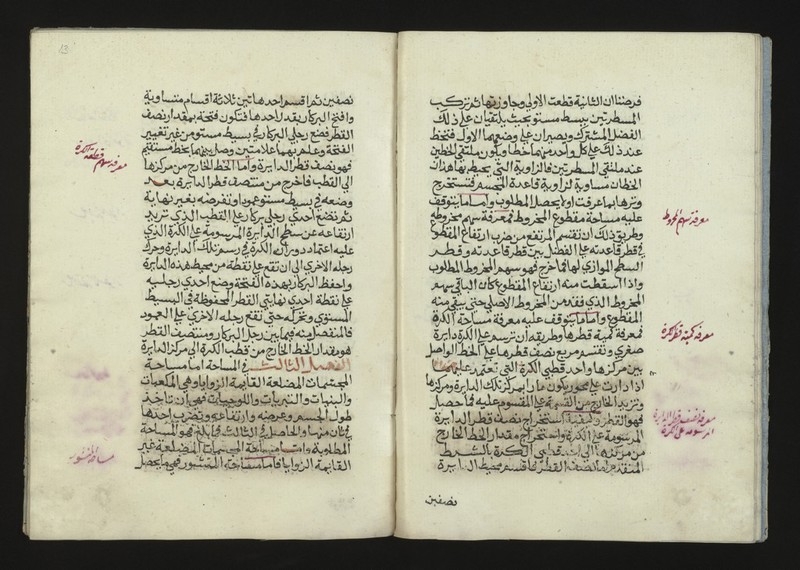 فرضنا ان الثانية قطعت الاولى وجاوزتها ثم تركب
المسطرتين ببسط مستو بحيث يلتقيان على ذلك
الفصل المشترك ويصيران على وضعهما الاول فتخط
عند ذلك على كل واحد منهما خطا ويكون ملتقى الخطين
عند ملتقى المسطرتين فالزاوية التي يحيط بها هذان
الخطان مساوية لزاوية قاعدة المجسم فتستخرج
وترها بما عرفت اولا يحصل المطلوب واما ما يتوقف
عليه مساحة مقطوع المخروط فمعرفة سهم مخروطه
وطريق ذلك ان تقسم المرتفع من ضرب ارتفاع المقطوع
في قطر قاعدته على الفضل بين قطر قاعدته وقطر
السطح الموازي لها فما خرج فهو سهم المخروط المطلوب
واذا اسقطت منه ارتفاع المقطوع كان الباقي سهم
المخروط الذي فقد من المخروط الاصلي حتى بقي منه
المقطوع واما ما يتوقف عليه معرفة مساحة الكرة
فمعرفة كمية قطرها وطريقه ان ترسم على الكرة دايرة
صغرى وتقسم مربع نصف قطرها على الخط الواصل
بين مركزها واحد قطبي الكرة التي تعتمد عليهما
اذا دارت على محور يكون مارا بمركز تلك الدايرة ومركزها
وتزيد الخارج من القسمة على المقسوم عليه فما حصل
فهو القطر وكيفية استخراج نصف قطر الدايرة
المرسومة على الكرة واستخراج مقدار الخط الخارج
من مركزها الى احد قطبي الكرة بالشرط
المتقدم اما نصف القطر فاقسم محيط الدايرة
نصفين
معرفة سهم المخروط
معرفة كمية قطر الكرة
معرفة نصف قطر الدايرة
المرسومة على الكرة
13
نصفين ثم اقسم احد هاتين ثلاثة اقسام متساوية
وافتح البركار بقدر احدها فتكون فتحته بمقدار نصف
القطر فضع رجلي البركار في بسيط مستو من غير تغيير
الفتحة وعلم بهما علامتين وصل بينهما بخط مستقيم
فهو نصف قطر الدايرة واما الخط الخارج من مركزها
الى القطب فاخرج من منتصف قطر الدايرة بعد
وضعه في بسيط مستو عمودا وتفرضه بغير نهاية
ثم تضع احدى رجلي بركار على القطب الذي تريد
ارتفاعه عن سطح الدايرة المرسومة على الكرة الذي
عليه اعتماد دوران الكرة في رسم تلك الدايرة وحرك
رجله الاخرى الى ان تقع على نقطة من محيط هذه الدايرة
واحفظ البركار بهذه الفتحة وضع احدى رجليه
على نقطة احدى نهايتي القطر المحفوظة في البسيط
المستوى وتحركه حتى تقع رجله الاخرى على العمود
فالمنفصل منه فيما بين رجل البركار ومنتصف القطر
هو مقدار الخط الخارج من قطب الكرة الى مركز الدايرة
الفصل الثالث في المساحة اما مساحة
المجسمات المضلعة القايمة الزوايا وهي المكعبات
والبنيات والتيريات واللوحيات فهو ان تاخذ
طول الجسم وعرضه وارتفاعه وتضرب احدها
في ثان منها والحاصل في الثالث فما بلغ فهو المساحة
المطلوبة واما مساحة المجسمات المضلعة غير
القايمة الزوايا فاما مساحة المنشور فهي ما يحصل
معرفة سهم قطعة الكرة
مساحة المنشور